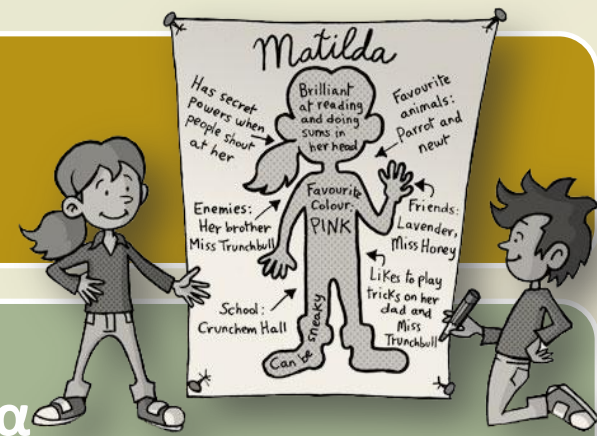 Matilda
Has secret
powers when
people shout
at her
Brilliant
at reading
and doing
sums in
her head
Favourite
animals:
Parrot and
newt
Enemies:
Her brother
Miss Trunchbull
Favourite
Colour,
PINK
Friends:
Lavender,
Miss Honey
School:
Crunchem Hall
Likes to play
tricks on her
dad and
Miss
Trunchbull
Can be sneaky
a